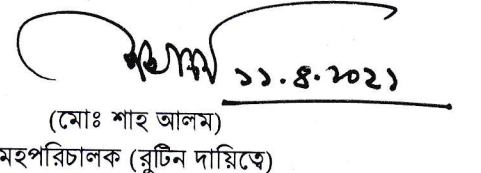 ১১.৪.২০২১
(মোঃ শাহ আলম)
মহপরিচালক (রুটিন দায়িত্বে)